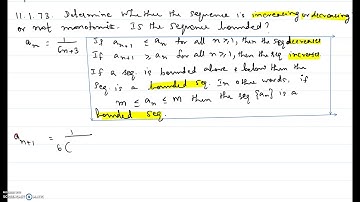 11.1.73. Determine whether the sequence is increasing, or decreasing
or not monotonic. Is the sequence bounded?
a_n = 1/(6n+3)
If a_{n+1} ≤ a_n for all n ≥ 1, then the seq decreases
If a_{n+1} ≥ a_n for all n ≥ 1, then the seq increases
If a seq. is bounded above & below then the
seq. is a bounded seq. In other words, if
m ≤ a_n ≤ M then the seq {a_n} is a
bounded seq.
a_{n+1} = 1/6(